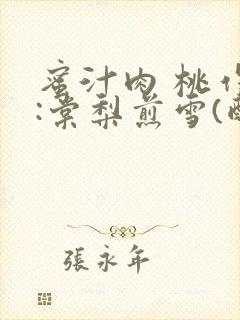 蜜汁肉桃作
:棠梨煎雪(醉
張永年